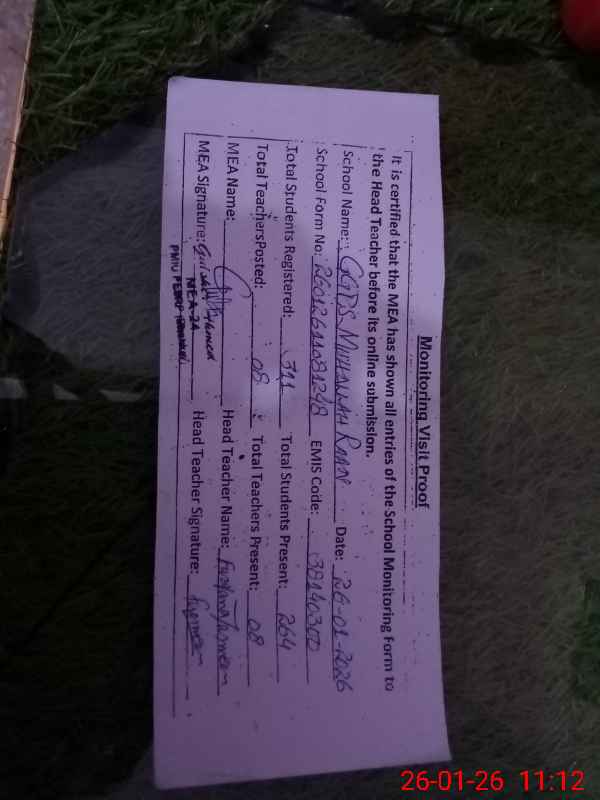 Monitoring Visit Proof
It is certified that the MEA has shown all entries of the School Monitoring Form to
the Head Teacher before its online submission.
School Name: GGPS Date: 26-01-2026
School Form No: EMIS Code: 38140300
Total Students Registered: 311 Total Students Present: 264
Total TeachersPosted: 08 Total Teachers Present: 08
MEA Name: Head Teacher Name:
MEA Signature: Head Teacher Signature:
MEA-24
PMIU
26-01-26 11:12